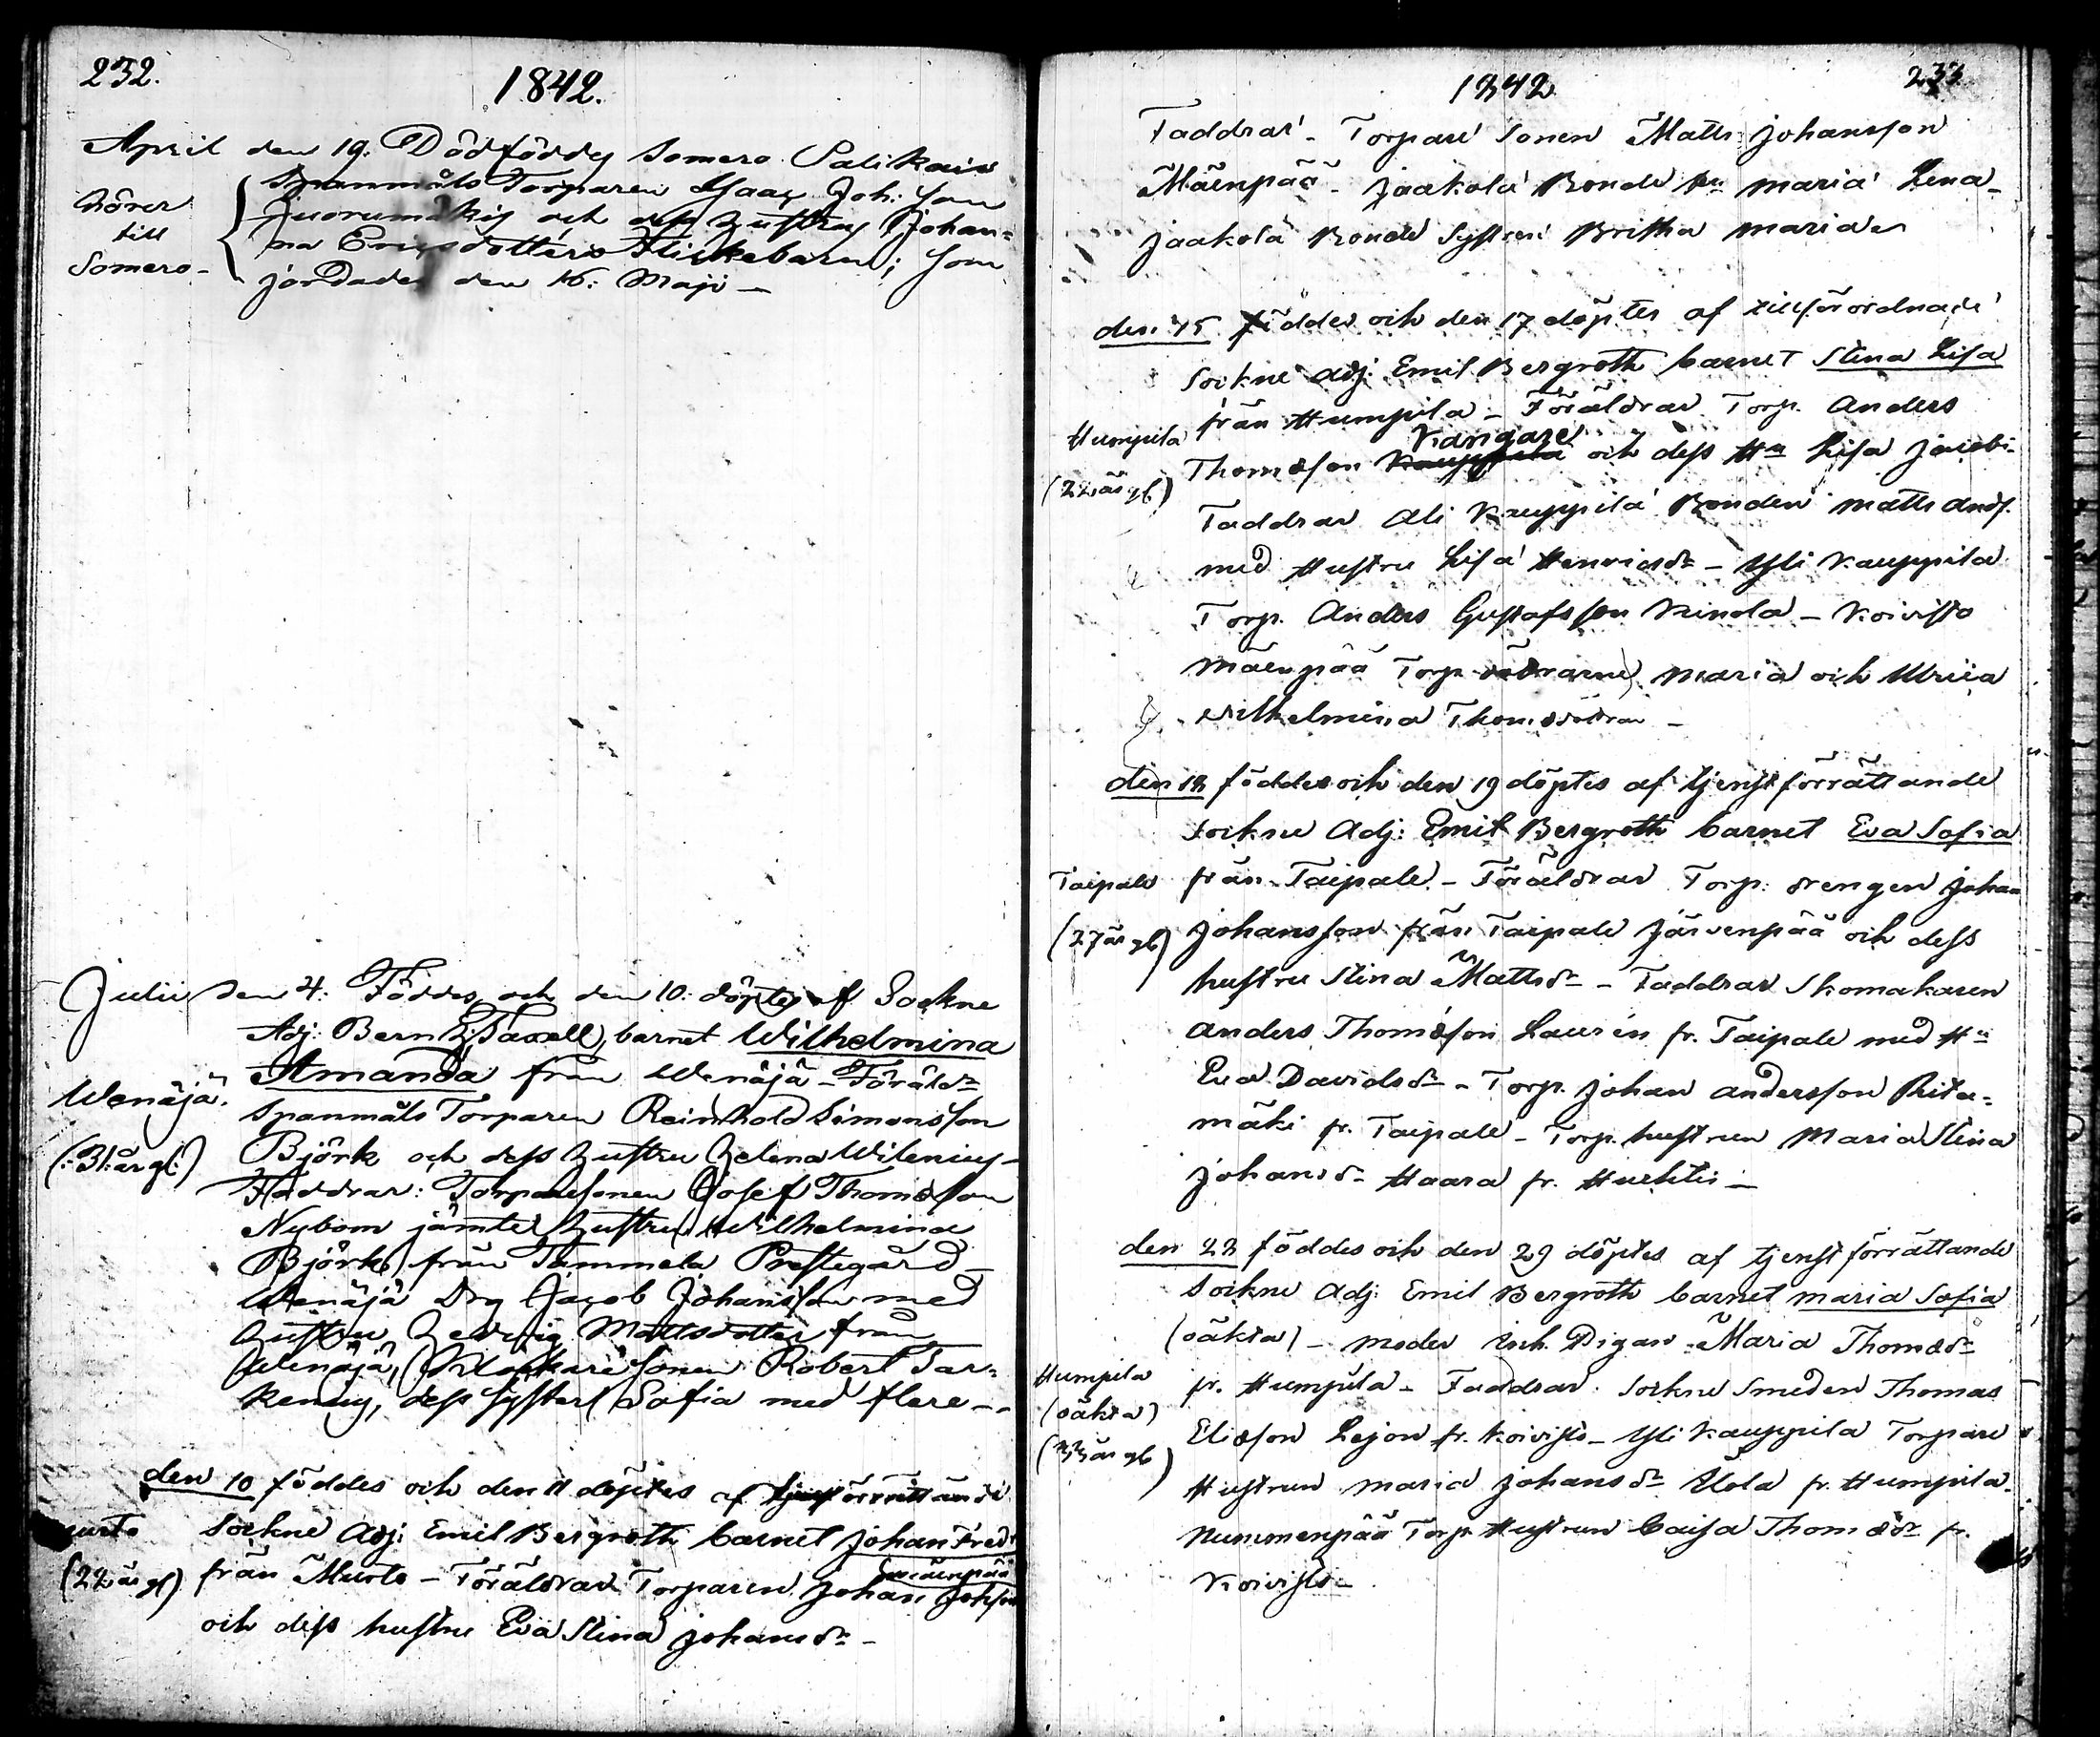 232.
1842.
April den 19. Dödföddes Somero Palikais
Hörer till Somero-
Spanmåls Torparen Isaac Joh: Son
Juorumäkis och dess hustrus Johan=
na Ericsdotters Flickebarn; som
jordades den 16: Maji -
Julii den 4: Föddes och den 10: döptes af Sockne
Adj: Bernh. Taxell, barnet Wilhelmina
Amanda från Wenäjä - Föräldr
Wenäjä.
Spanmåls Torparen Reinhold Simonsson
(:31: år gl:)
Björk och dess hustru Helena Wilenius -
Faddrar: Torparesonen Josef Thomasson
Nybom jämte hustru Wilhelmina
Björk från Tammela Prestegård -
Wenäjä Drg Jacob Johansson med
hustru Hedvig Mattsdotter från
Wenäjä, sonen Robert Tar=
kenius, dess syster Sofia med flere -
den 10 föddes och den 11 döptes af tjenstförrättande
Sockne Adj: Emil Bergroth barnet Johan Fredr
(22 år gl)
från Murto - Föräldrar Torparen Johan Johsson
Mäenpää
och dess hustru Eva Stina Johansdr -
1842
233
Faddrar - Torpare sonen Matts Johansson
Mäenpää - Jaakola Bonde Maria Lena -
Jaakola Bonde Systren Britha Maria
den 15 föddes och den 17 döptes af tillförordnade
Sockne adj: Emil Bergroth barnet Stina Lisa
Humpila
från Humpila - Föräldrar Torp. Anders
Kangare
Thomasson Kauppila och dess Hu Lisa Jacobi-
(22 år gl)
Faddrar Ali Kauppila Bonden Matts Ands.
med Hustru Lisa Henricsdr - Yli Kauppila
Torp. Anders Gustafsson Kinola - Koivisto
Mäenpää Torp. Maria och Ulrica
Wilhelmina Thomasdöttrar -
den 18 föddes och den 19 döptes af tjenstförrättande
sockne Adj: Emil Bergroth barnet Eva Sofia
Taipale
från Taipale - Föräldrar Torp: drengen Johan
(27 år gl)
Johansson från Taipale Järvenpää och dess
hustru Stina Mattsdr - Faddrar Skomakaren
Anders Thomasson Laurén fr. Taipale med Hu
Eva Davidsdr - Torp. Johan Andersson Rita=
mäki fr. Taipale - Torp. hustrun Maria Stina
Johansd. Haara fr. Huhtis -
den 28 föddes och den 29 döptes af tjenstförrättande
sockne Adj: Emil Bergroth barnet Maria Sofia
(oäkta) - moder Inh. Pigan Maria Thomasdr
Humpila
fr. Humpila - Faddrar: Sockne Smeden Thomas
(oäkta)
Eliasson Lejon fr. Koivisto - Yli Kauppila Torpare
(33 år gl)
Hustrun Maria Johansdr Uola fr. Humpila.
Nummenpää Torp. Hustrun Caisa Thomasdr fr.
Koivisto -